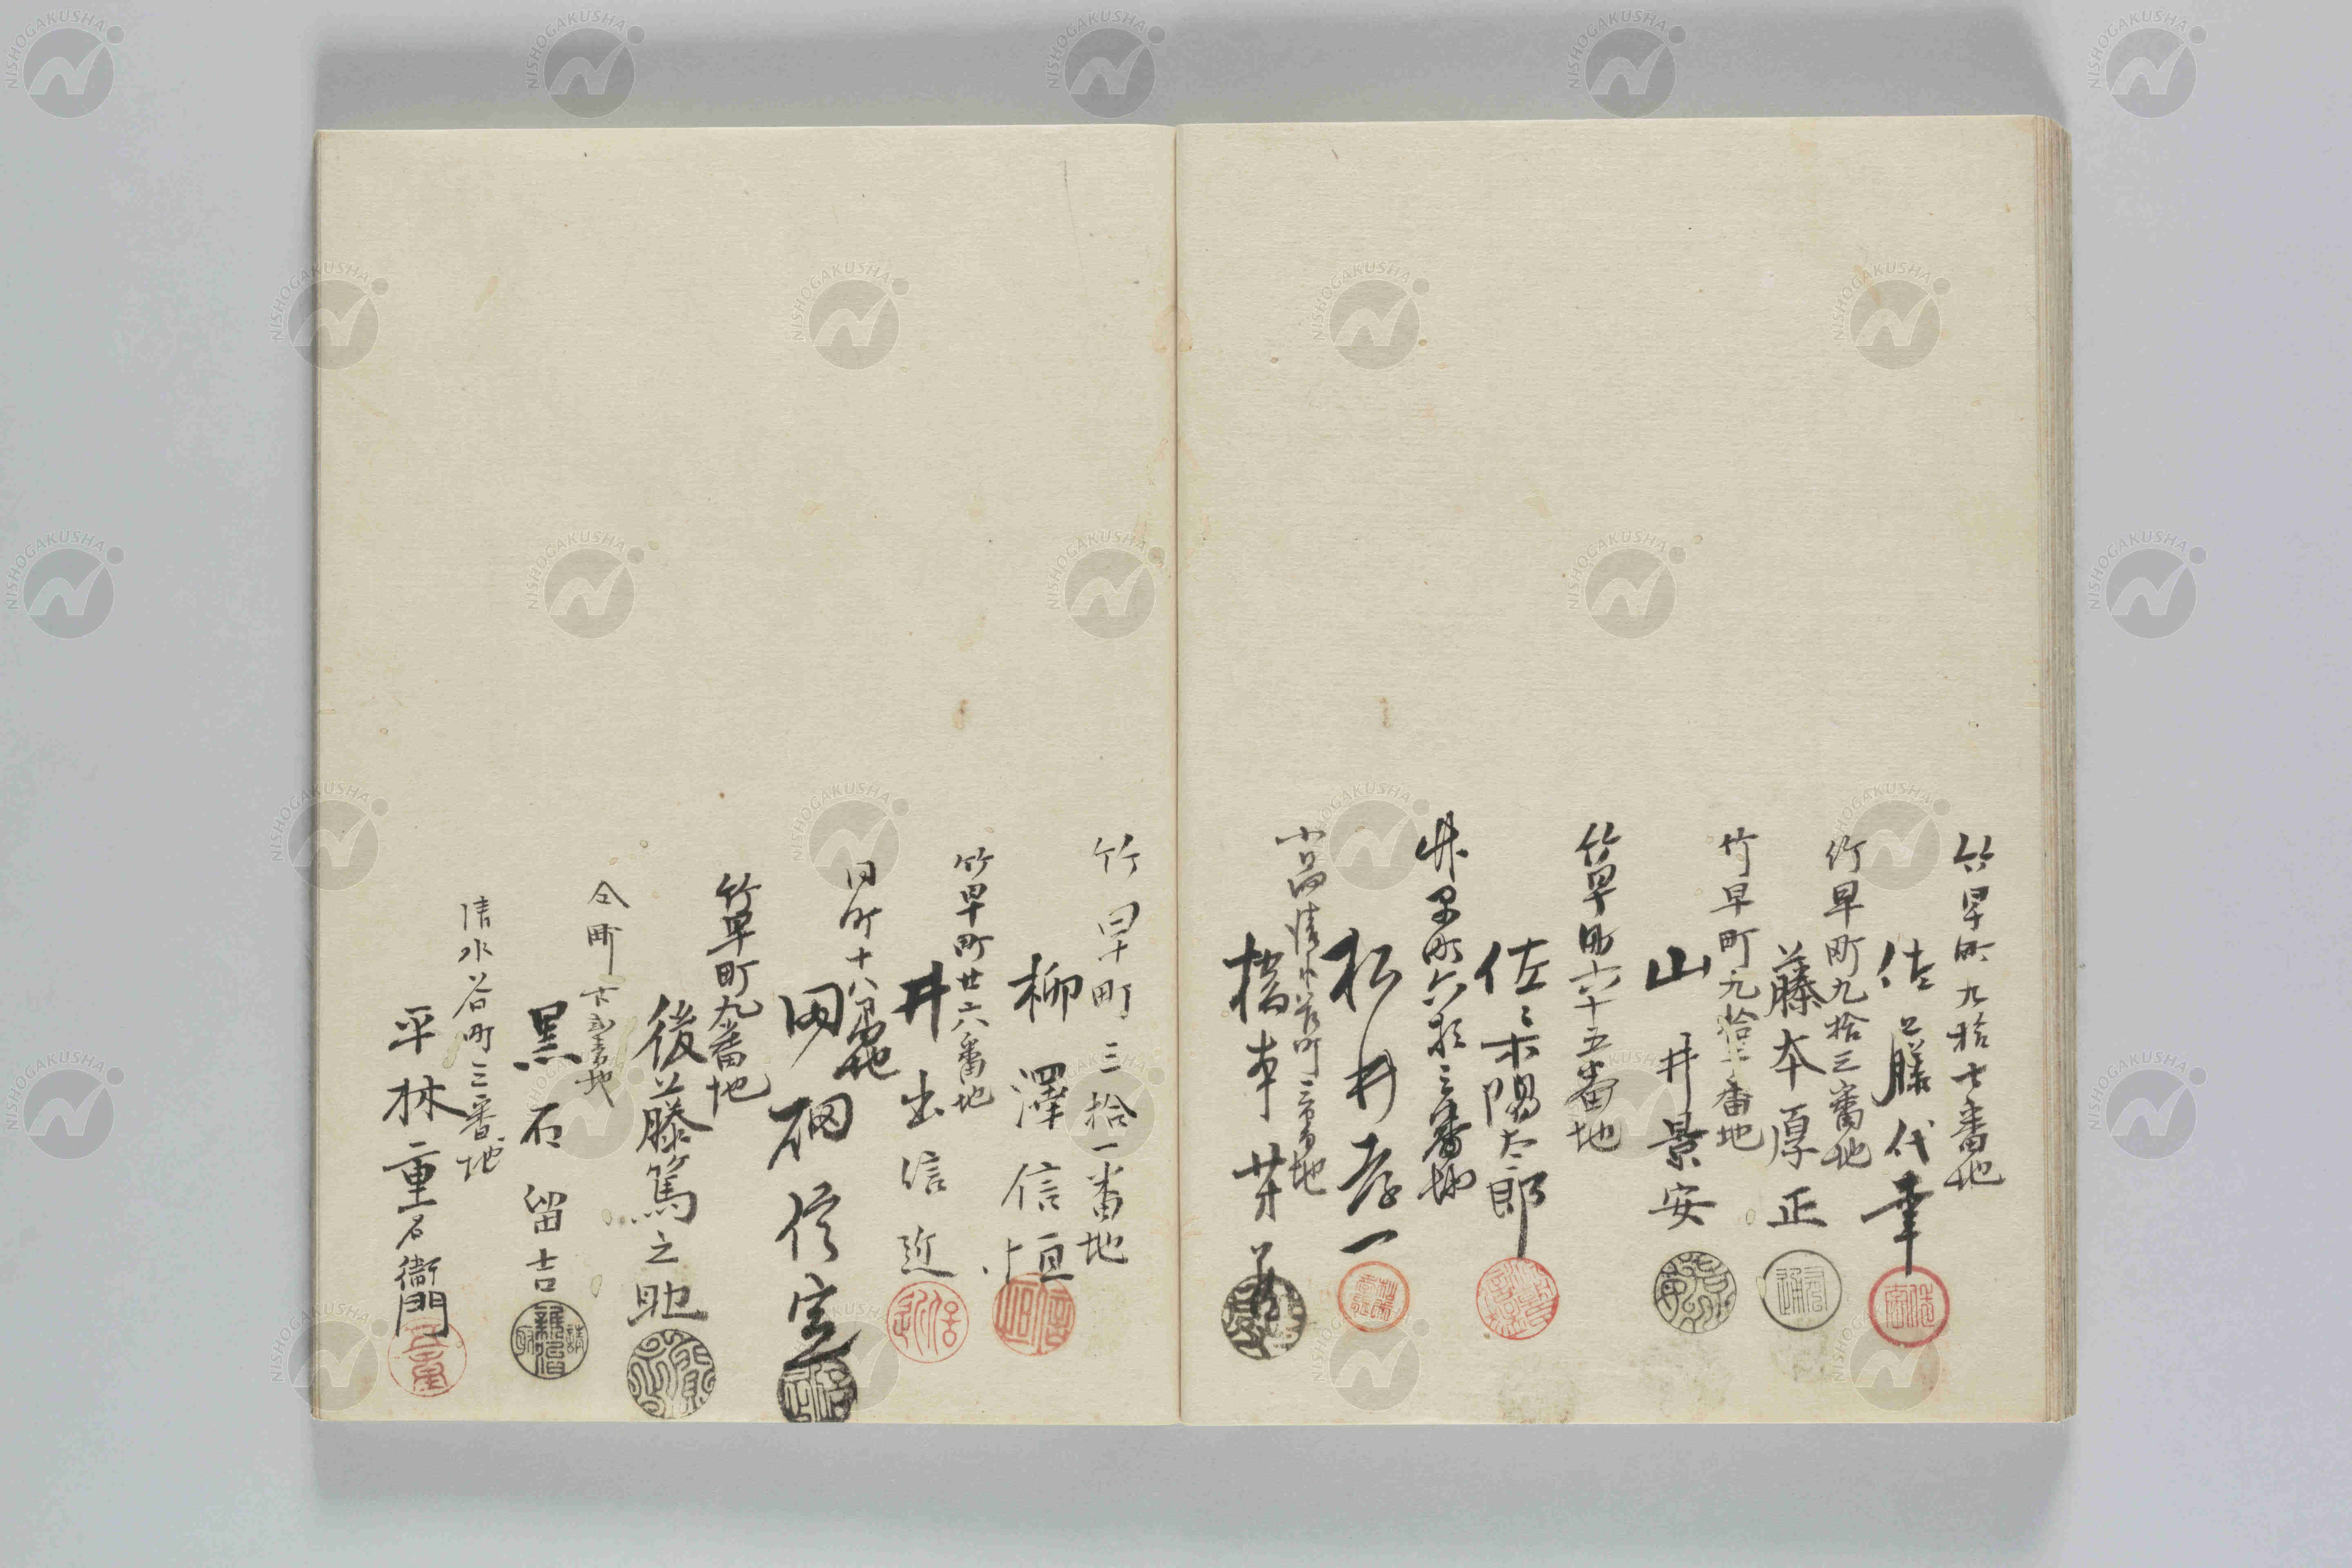 竹早町九拾七番地
佐藤代幸
竹早町九拾三番地
藤本厚正
竹早町九拾二番地
山井景安
竹早町六十五番地
佐々木陽太郎
竹早町六拾三番地
松井孝一
小石川清水谷町三番地
橋本
竹早町三拾一番地
柳澤信垣
竹早町廿六番地
井出信近
同町十八番地
岡網信定
竹早町九番地
後藤篤之助
仝町
黒石留吉
清水谷町三番地
平林重右衛門
NISHOGAKUSHA